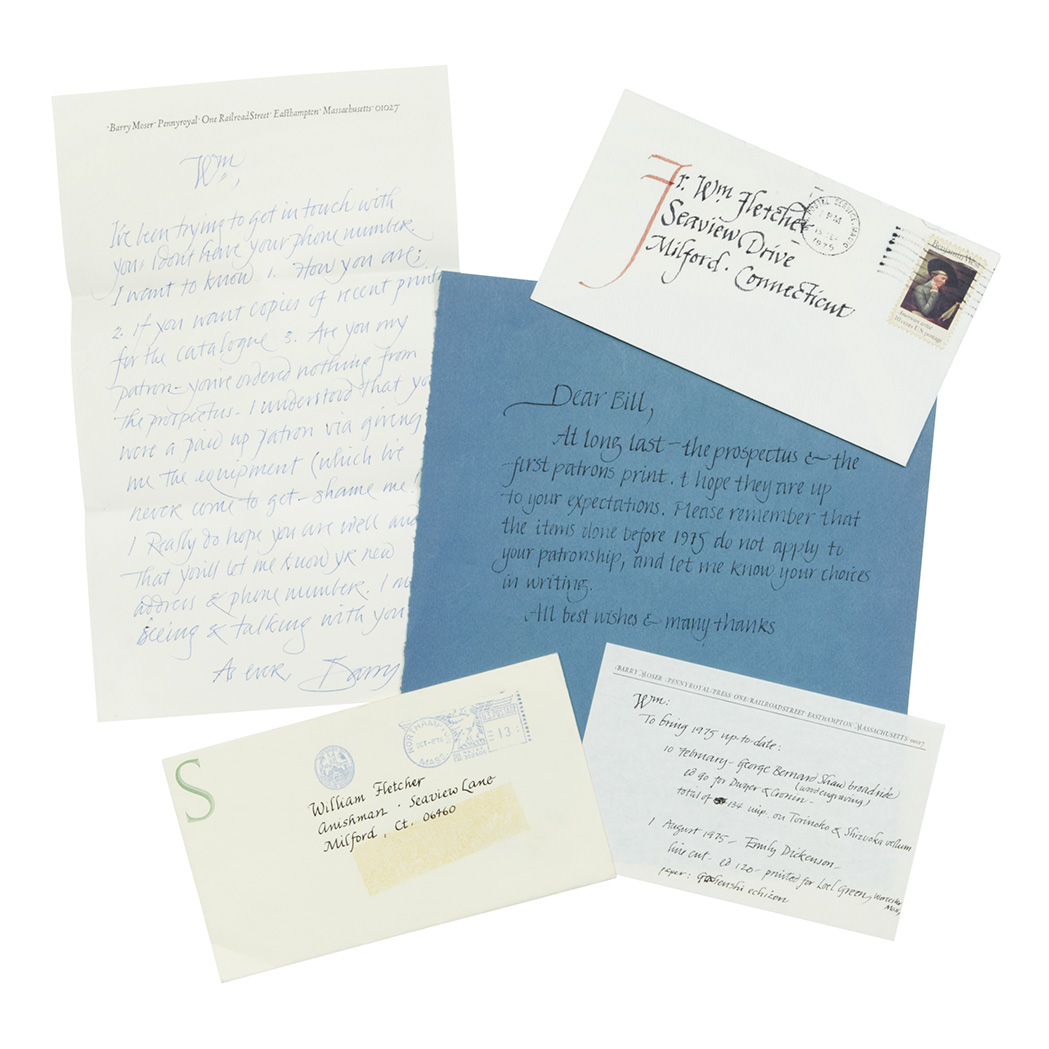 ·Barry Moser· Pennyroyal· One Railroad Street· Easthampton· Massachusetts· 01027
Wm,
I've been trying to get in touch with
you. I don't have your phone number.
I want to know 1. How you are;
2. if you want copies of recent prints
for the catalogue 3. Are you my
patron - you've ordered nothing from
the prospectus - I understood that you
were a paid up patron via giving
me the equipment (which I've
never come to get - shame me
I Really do hope you are well and
that you'll let me know yr new
address & phone number. I
seeing & talking with you
As ever, Barry
Fr. Wm Fletcher
Seaview Drive
Milford · Connecticut
PM
1975
Benjamin West
American artist
10 cents U.S. postage
Dear Bill,
At long last - the prospectus & the
first patrons print. I hope they are up
to your expectations. Please remember that
the items done before 1975 do not apply to
your patronship, and let me know your choices
in writing.
All best wishes & many thanks
S
MASS
13
William Fletcher
Anishman · Seaview Lane
Milford, Ct. 06460
BARRY MOSER · PENNYROYAL PRESS · ONE RAILROAD STREET · EASTHAMPTON · MASSACHUSETTS 01027
Wm:
To bring 1975 up-to-date:
10 February - George Bernard Shaw broadside
ed 90 for Dwyer & Cronin - (wood engraving)
total of 134 imp. on Torinoko & Shizuoka vellum
1 August 1975 - Emily Dickenson -
line cut - ed 120 - printed for Loel Green, Worcester
Mass,
paper: Gochenshi echizon